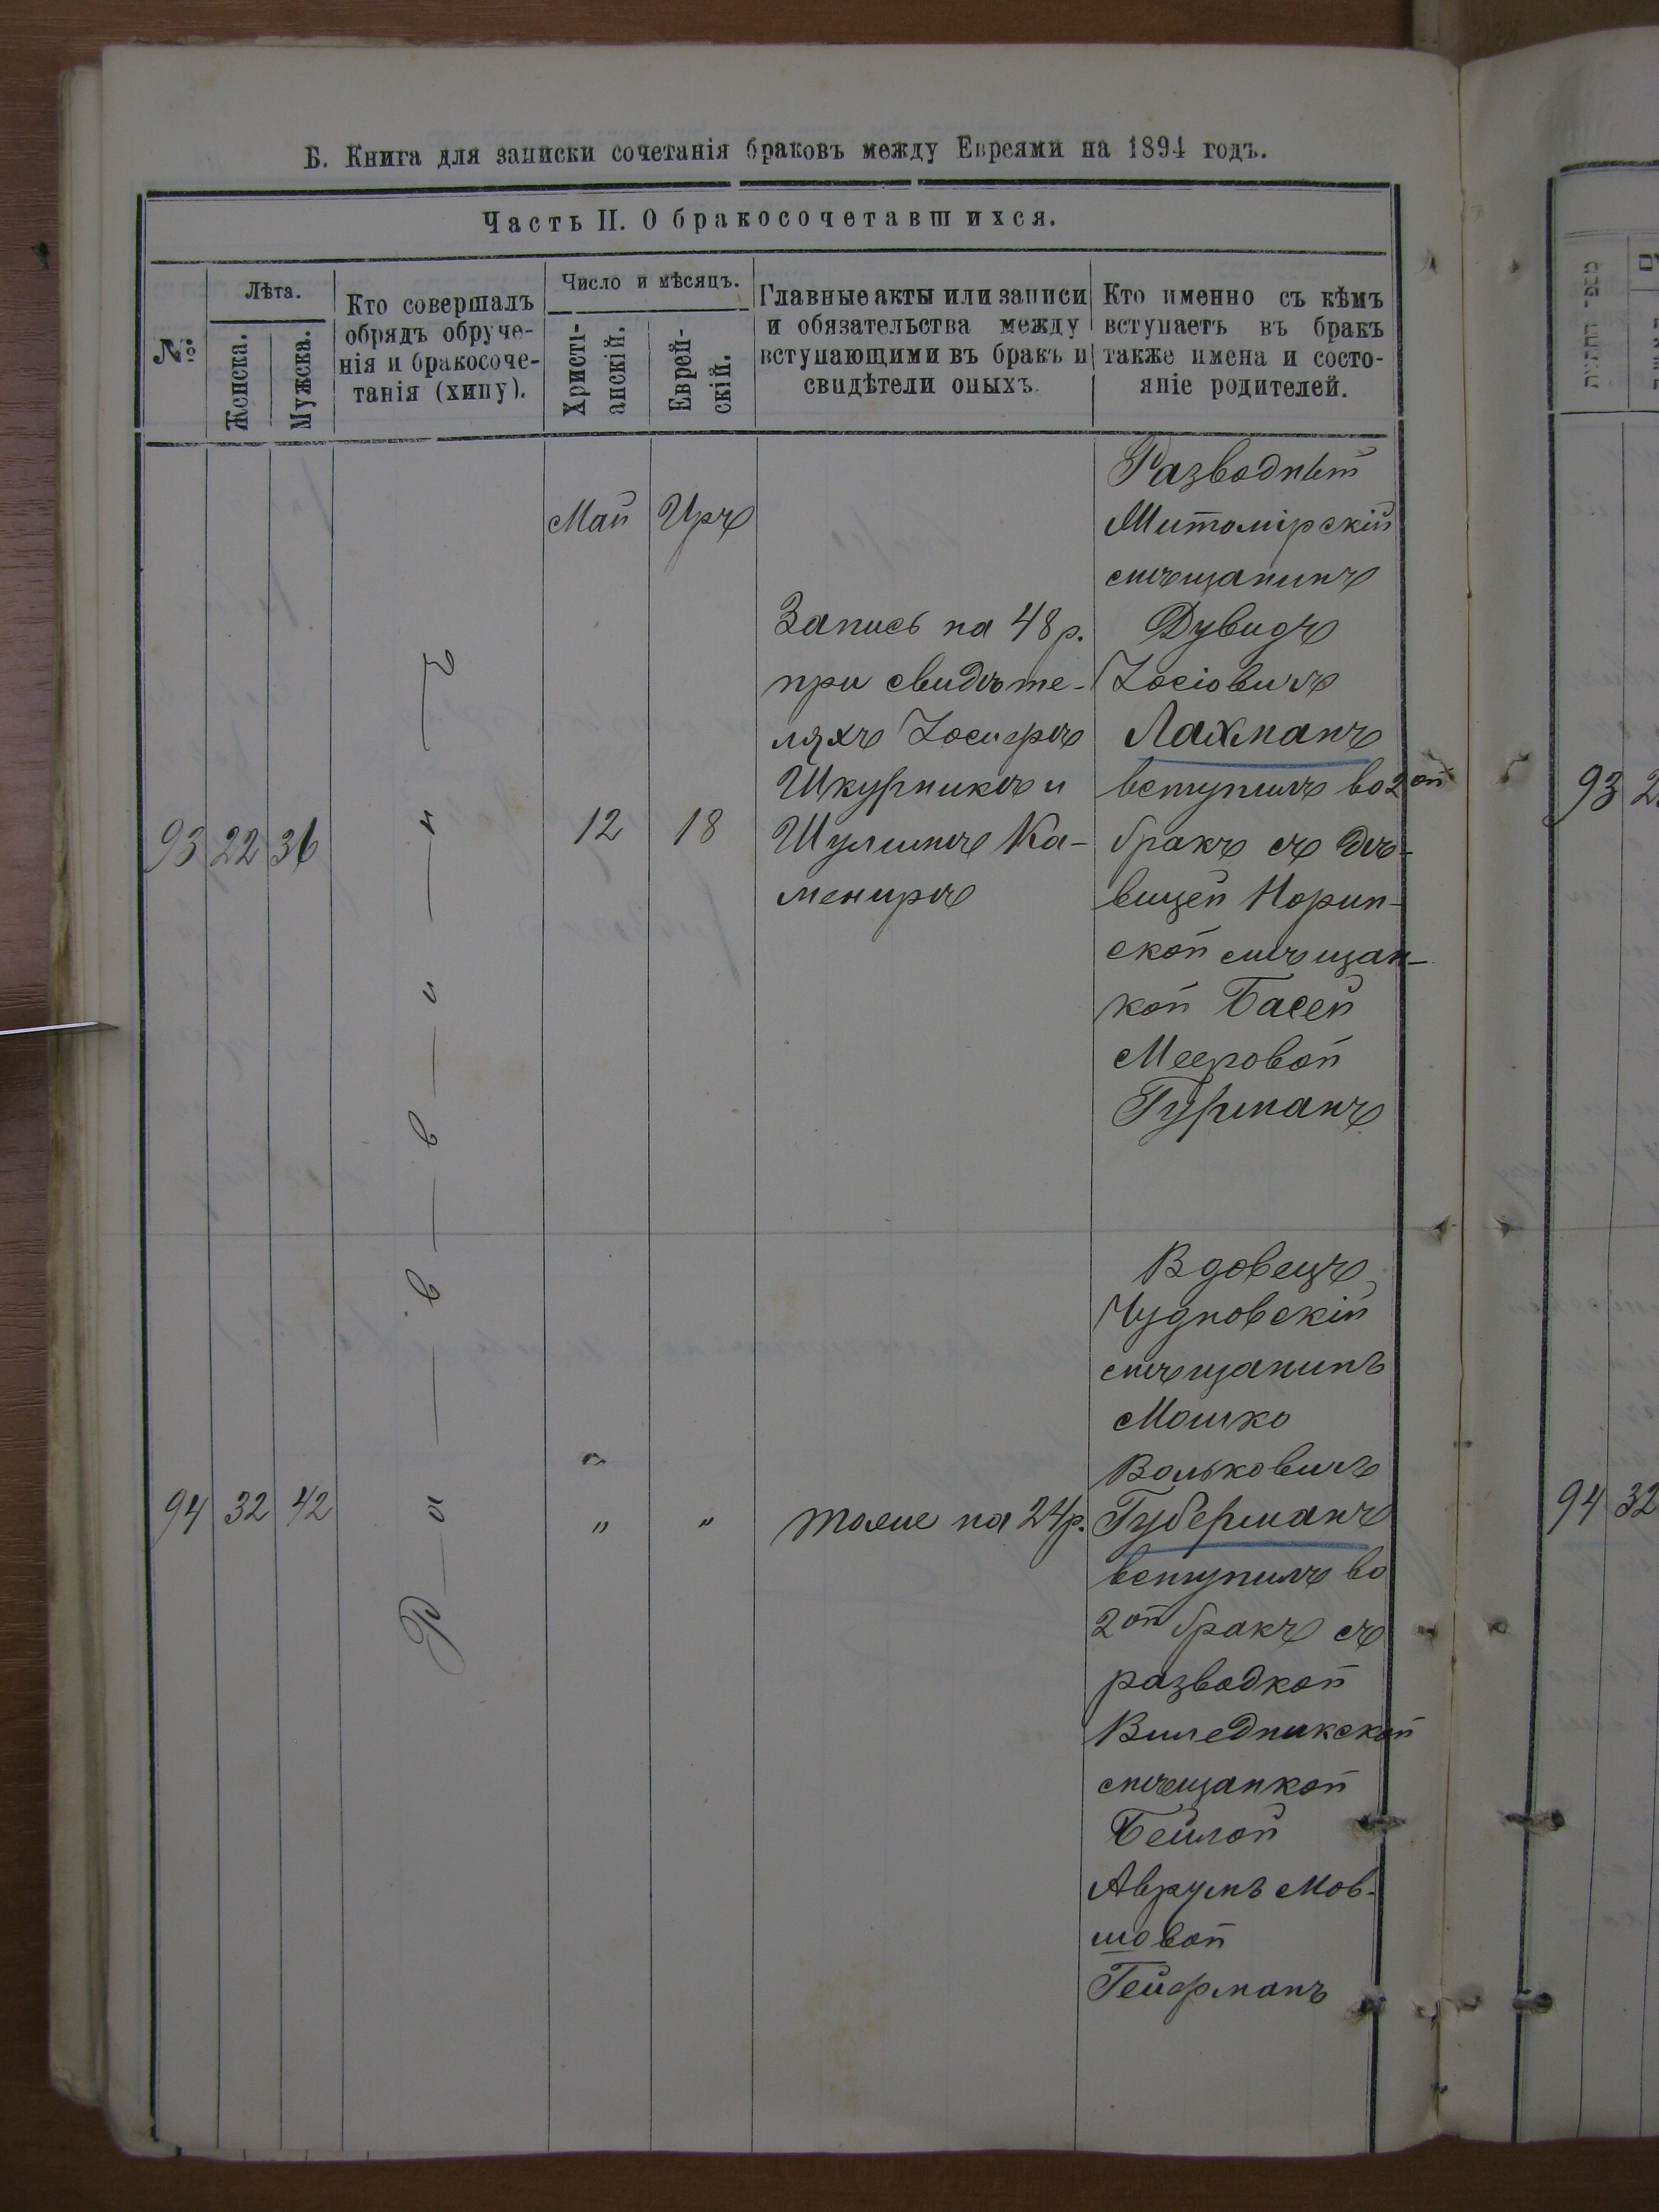 Б. Книга для записки сочетанія браковъ между Евреями на 1894 годъ.
Часть II. О бракосочетавшихся.
№
Лѣта.
Женска.
Мужска.
Кто совершалъ
обрядъ обруче-
нія и бракосоче-
танія (хипу).
Число и мѣсяцъ.
Христі-
анскій.
Еврей-
скій.
Главные акты или записи
и обязательства между
вступающими въ бракъ и
свидѣтели оныхъ.
Кто именно съ кѣмъ
вступаетъ въ бракъ
также имена и состо-
яніе родителей.
Р—а—в—в—и—н—ъ
Май
Иръ
93
22
36
12
18
Запись на 48 р.
при свидѣте-
ляхъ Іосифѣ
Шкурникѣ и
Шулимѣ Ка-
менирѣ
Разводный
Житомірскій
мѣщанинъ
Дувидъ
Іосіовичъ
Лахманъ
вступилъ во 2ой
бракъ съ дѣ-
вицей Норин-
ской мѣщан-
кой Басей
Мееровой
Гурманъ
94
32
42
"
"
тоже на 24 р.
Вдовецъ
Чудновскій
мѣщанинъ
Мошко
Вольковичъ
Губерманъ
вступилъ во
2ой бракъ съ
разводкой
Виледникской
мѣщанкой
Бейлой
Аврумъ Мов-
шовой
Гейфманъ
93
94
32